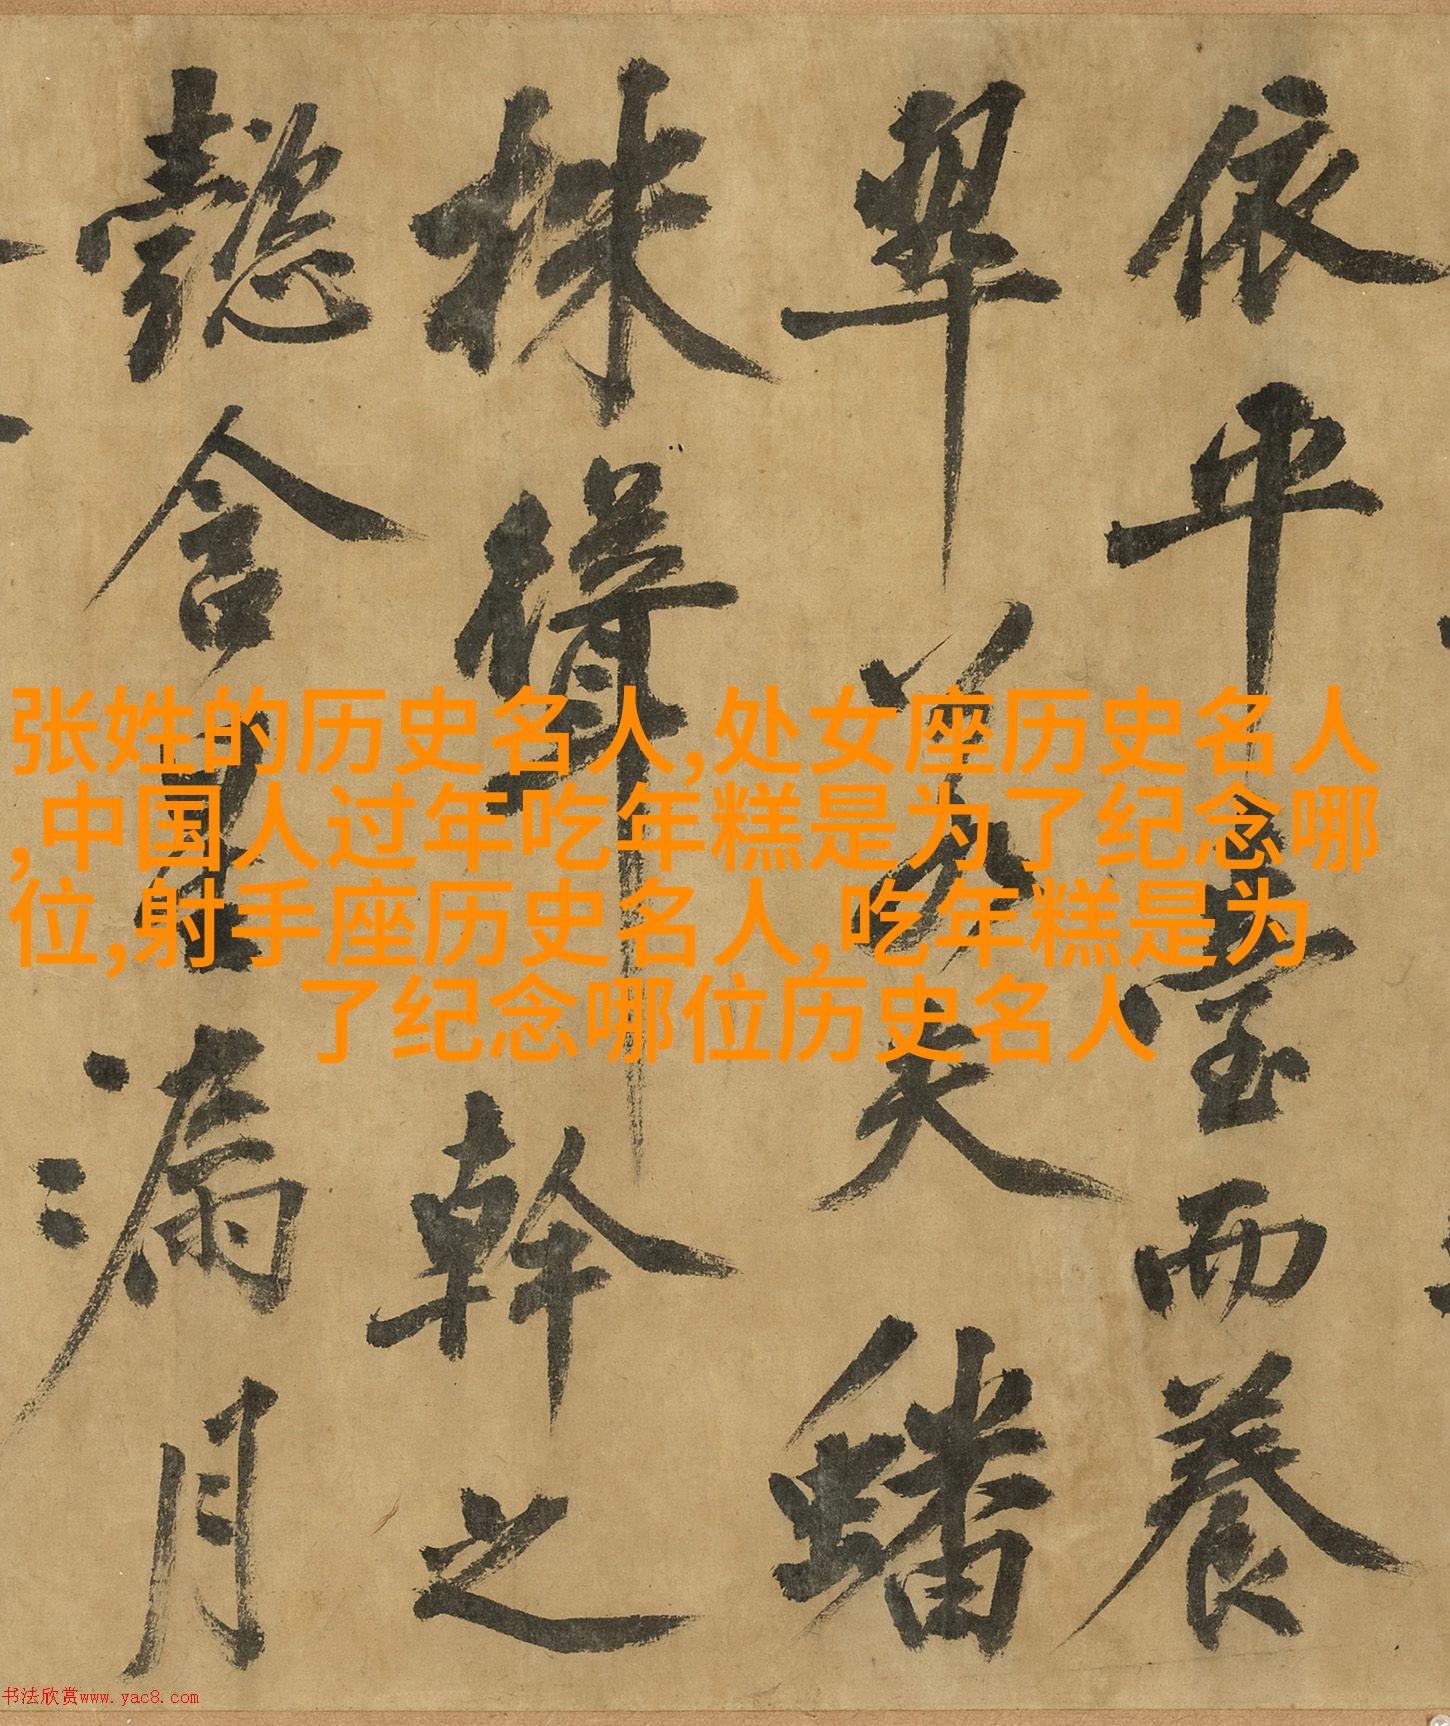 依而養
翠若夫蟠
株聳幹之
懿含星漏月
张姓的历史名人,处女座历史名人
,中国人过年吃年糕是为了纪念哪
位,射手座历史名人,吃年糕是为
了纪念哪位历史名人
书法欣赏www.yac8.com